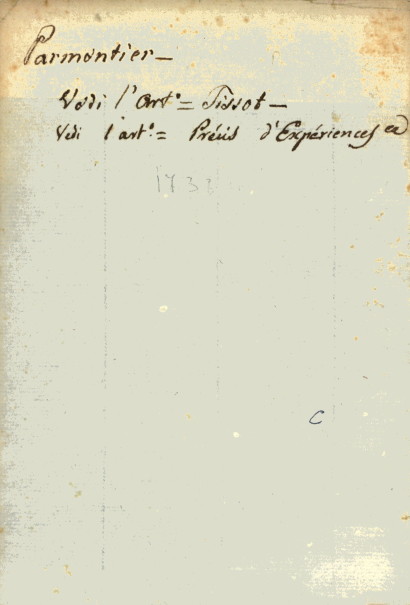 Parmontier_
Vedi l'Art.º = Tissot_
Vedi l'art.º = Précis d'Expériences &
173
C